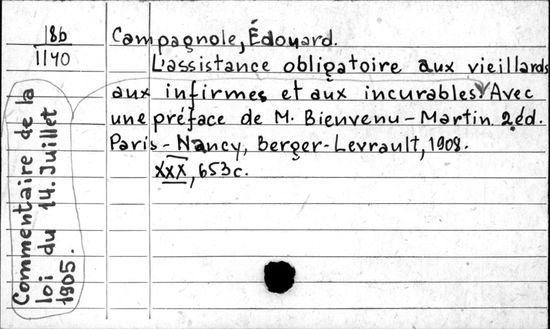 18b
1140
Campagnole, Édouard.
L'assistance obligatoire aux vieillards
aux infirmes et aux incurables. Avec
une préface de M. Bienvenu-Martin 2éd.
Paris-Nancy, Berger-Levrault, 1908.
XXX, 653c.
Commentaire de la
loi du 14. Juillet
1905.